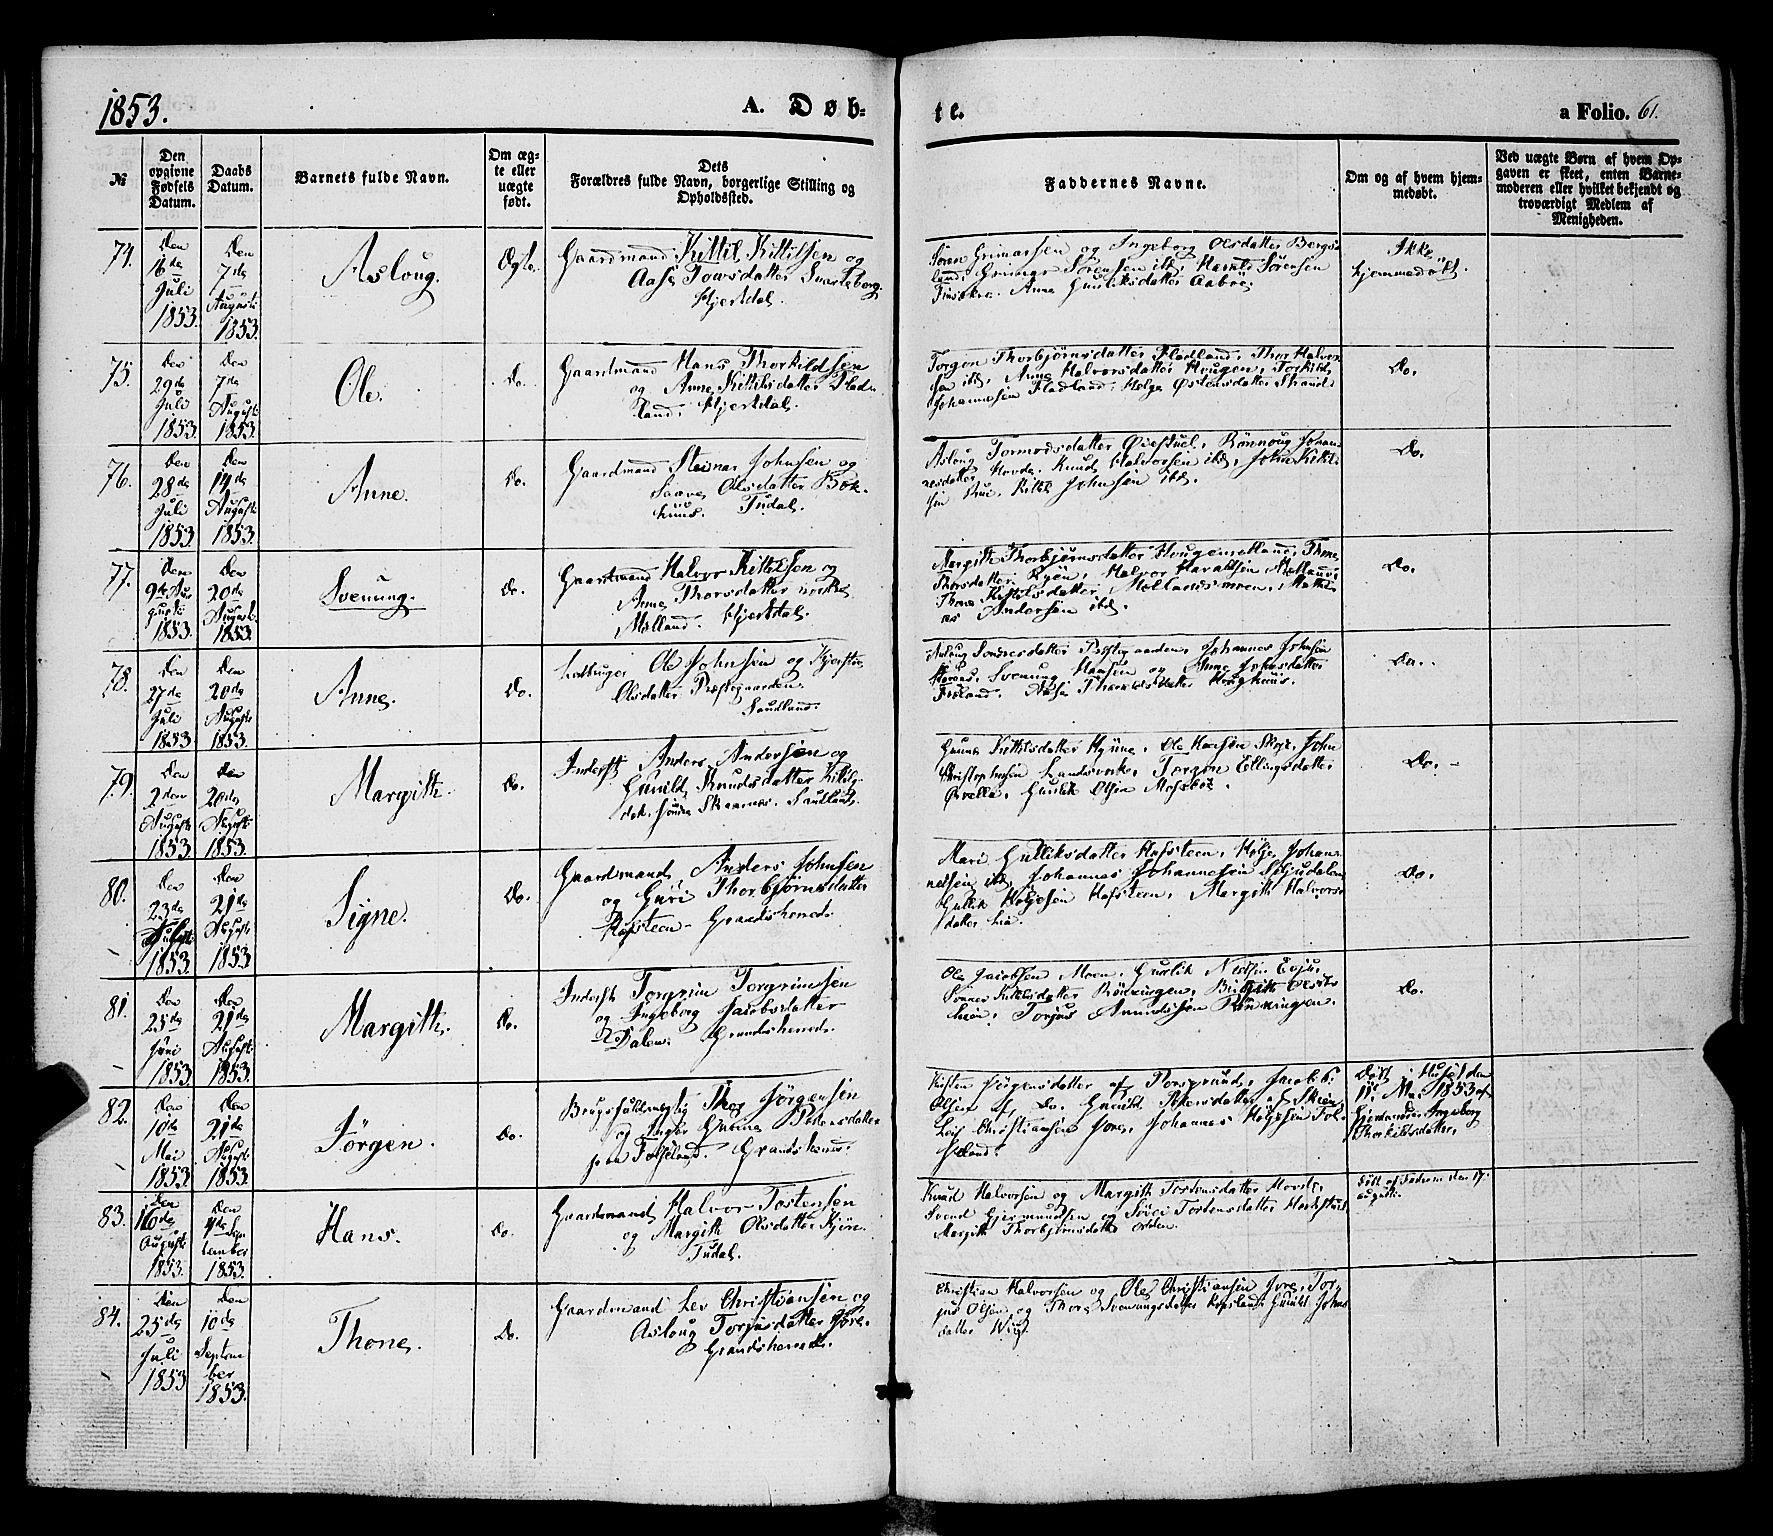 1853.
A. Døb-
te.
a Folio. 61.
№
Den opgivne Fødsels Datum.
Daabs Datum.
Barnets fulde Navn.
Om ægte eller uægte født.
Dets Forældres fulde Navn, borgerlige Stilling og Opholdssted.
Faddernes Navne.
Om og af hvem hjemmedøbt.
Ved uægte Børn af hvem Opgaven er skeet, enten Barnemoderen eller hvilket bekjendt og troværdigt Medlem af Menigheden.
74.
Den 16de Juli 1853.
Den 7de August 1853.
Asloug.
Ægte.
Gaardmand Kittil Kittilsen og
Aase Tovsdatter Svarteborg.
Hjertdal.
Søren Grimarsen og Ingeborg Olsdatter Bergs-
land, Grimar Sørensen ibd,
Anne Gulliksdatter Aabøe.
Ikke
hjemmedøbt.
75.
Den 29de Juli 1853.
Den 7de August 1853.
Ole.
Do.
Gaardmand Hans Thorkildsen
og Anne Kittilsdatter Flad-
land. Hjertdal.
Torgon Thorbjørnsdatter Fladland, Thor Halvor-
sen ibd, Anne Halvorsdatter Hougen, Torkild
Johannesen Fladland, Helge Østensdatter Strand.
Do.
76.
Den 28de Juli 1853.
Den 14de August 1853.
Anne.
Do.
Gaardmand Steinar Johnsen og
Saave Olsdatter Bøk-
huus. Tudal.
Asloug Tormodsdatter Øvestuel, Rønnoug Johan-
nesdatter Hovde, Knud Halvorsen ibd, John Kittil-
sen Rue, Kittil Johnsen ibd.
Do.
77.
Den 9de August 1853.
Den 20de August 1853.
Svenung.
Do.
Gaardmand Halvor Kittilsen og
Anne Thorsdatter
Mælland. Hjertdal.
Margith Thorbjørnsdatter Hougemælland, Thone
Thorsdatter Kyen, Halvor Haraldsen Mælland,
Thone Kittilsdatter Mellandsmoen, Mathi-
as Andersen ibd.
Do.
78.
Den 27de Juli 1853.
Den 20de August 1853.
Anne.
Do.
Ole Johnsen og Kjersti
Olsdatter Præstegaarden.
Saudland.
Asloug Sondresdatter Præstegaarden, Johannes Johnsen
Svenung Hansen og Anne Johnsdatter
Do.
79.
Den 2den August 1853.
Den 20de August 1853.
Margith.
Do.
Inderst Anders Andersen og
Gunild Knudsdatter
Saudland.
Gunne Kittilsdatter Hynne, Ole Hansen Skoje, John
Christophersen Landsverk, Torgon Ellingsdatter
Ørvella, Gullik Olsen Mosebøe.
Do.
80.
Den 23de Juli 1853.
Den 21de August 1853.
Signe.
Do.
Gaardmand Anders Johnsen
og Guri Thorbjørnsdatter
Hafsteen. Grandsherred.
Mari Gulliksdatter Hafsteen, Hølje Johan-
nessen ibd, Johannes Johannesen Skjudalen
Gullik Høljesen Hafsteen, Margith Halvors-
datter Lia.
Do.
81.
Den 25de Juni 1853.
Den 21de August 1853.
Margith.
Do.
Inderst Torgrim Torgrimsen
og Ingeborg Jacobsdatter
Dalen. Grandsherred.
Ole Jacobsen Moen, Gullik Nielsen Evju,
Torjus Amundsen Rønningen.
Do.
82.
Den 10de Mai 1853.
Den 21de August 1853.
Jørgen.
Do.
Brugsfuldmægtig Thor Jørgensen
og Inger Gunne Petersdatter
paa Folseland. Grandsherred.
Kirsten Jørgensdatter af Porsgrund, Jacob P.
Olsen af Do. Gunild Petersdatter af Skien
Leif Christiansen Jore, Johannes Høljesen Fol-
seland.
Døbt i Huset den
11te Mai 1853 af
Gjordemoder Ingeborg
Thorkildsdatter.
83.
Den 16de August 1853.
Den 4de September 1853.
Hans.
Do.
Gaardmand Halvor Tostensen
og Margith Olsdatter Kjøn.
Tudal.
Knud Halvorsen og Margith Tordensdatter Hovde,
Svend Gjermundsen og
Margith Thorbjørnsdatter
Døbt af Faderen den 17.
August.
84.
Den 25de Juli 1853
Den 10de September 1853.
Thone.
Do.
Gaardmand Lev Christiansen og
Asloug Torjusdatter Jøre.
Grandsherred.
Christian Halvorsen og Ole Christiansen Jore, Tor-
jus Olsen og Thore Svenungsdatter Gunild Johns-
datter